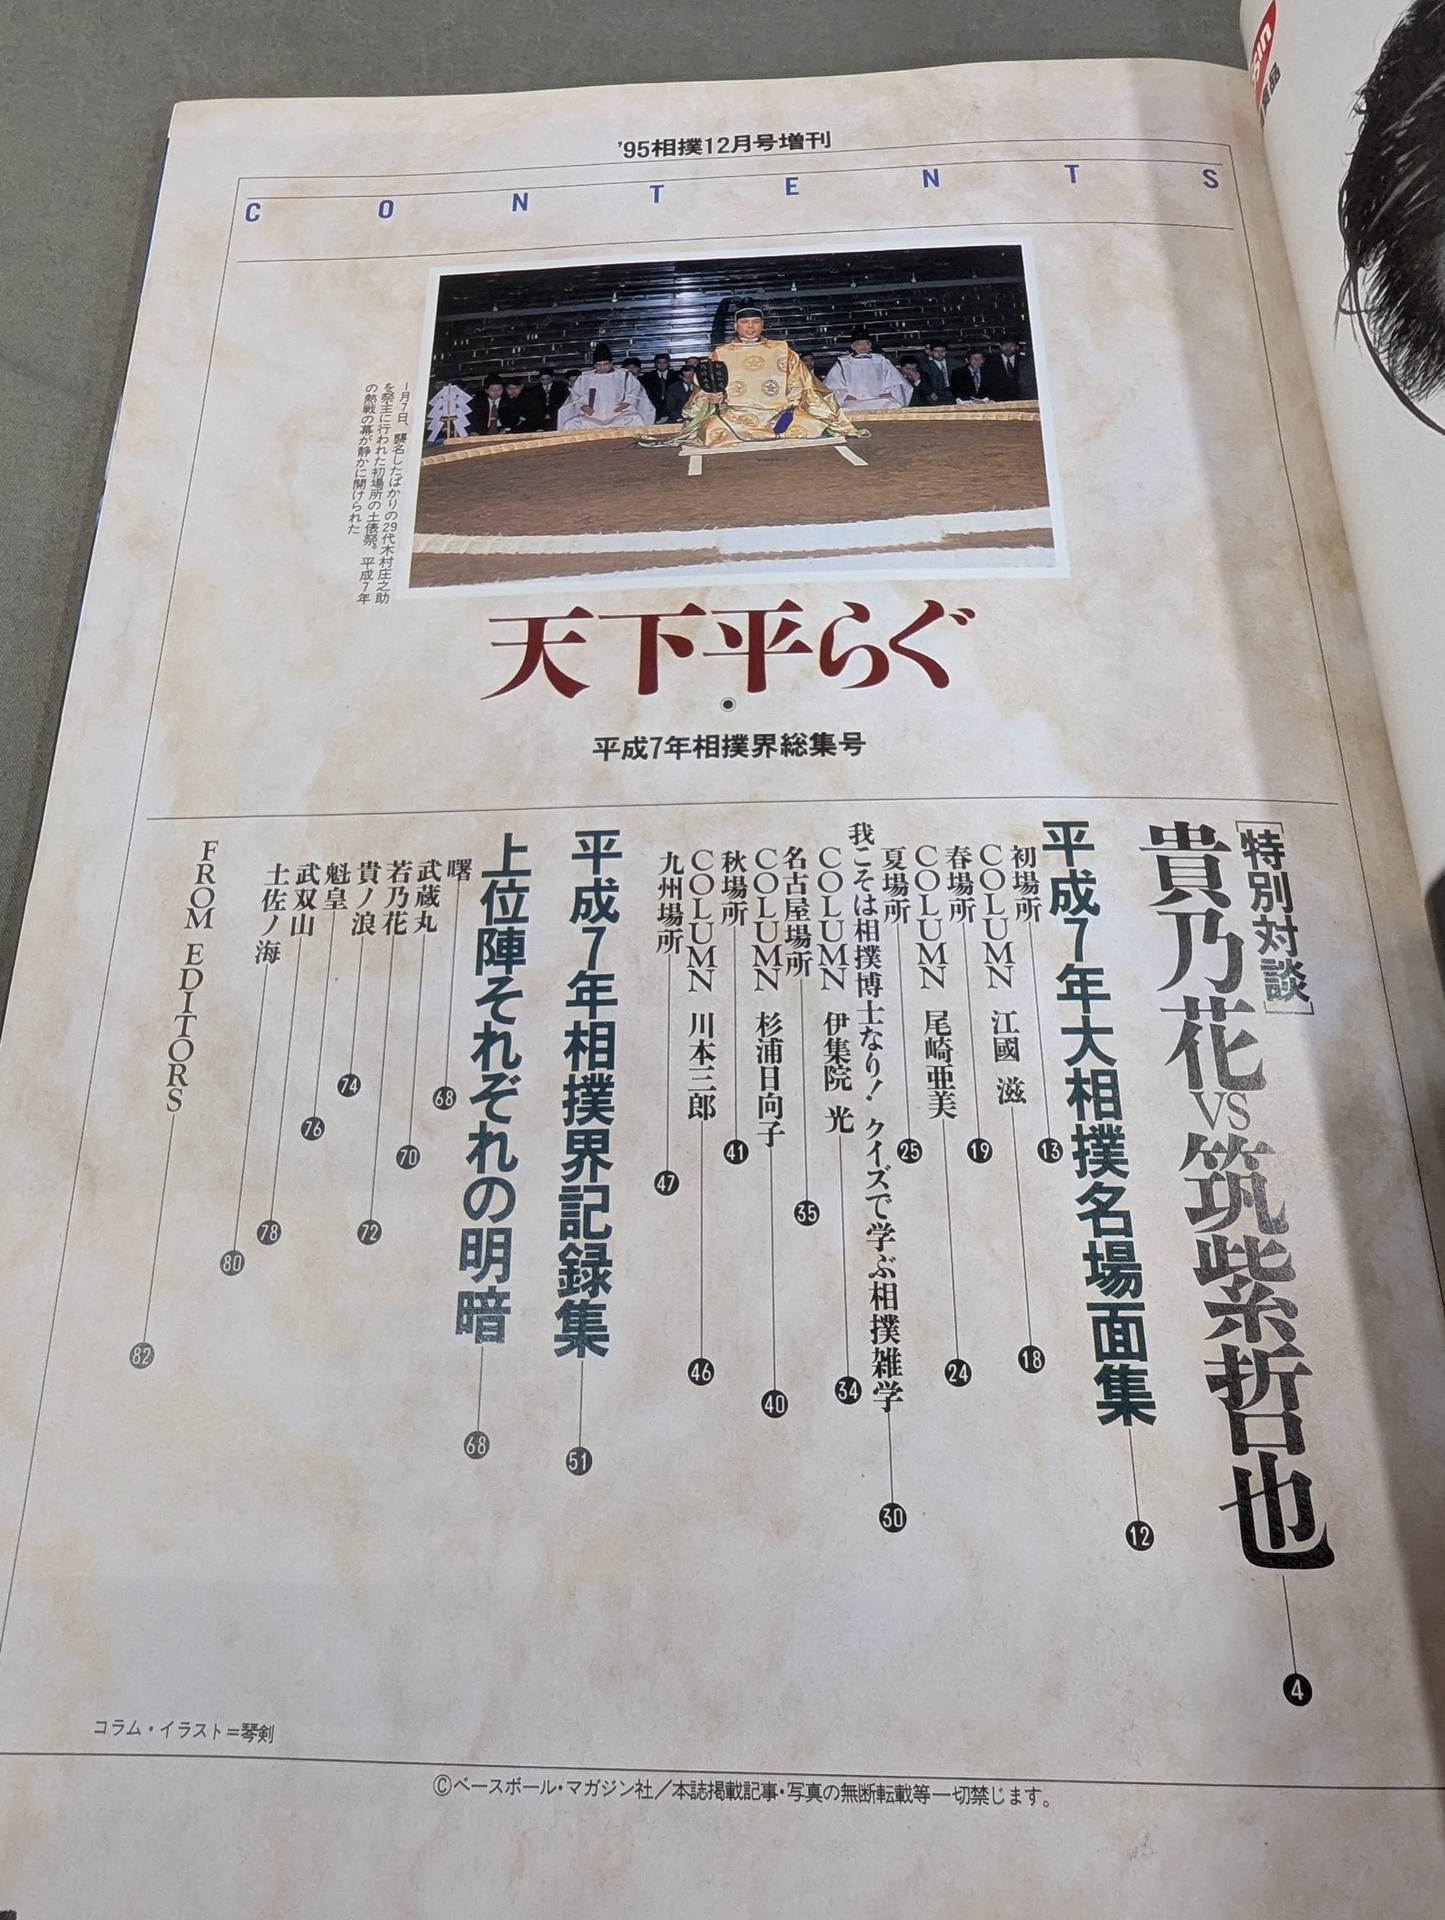 '95相撲12月号増刊
CONTENTS
1月7日、襲名したばかりの29代木村庄之助
を祭主に行われた初場所の土俵祭。平成7年
の熱戦の幕が静かに開けられた
天下平らぐ
平成7年相撲界総集号
[特別対談]
貴乃花VS筑紫哲也 4
平成7年大相撲名場面集 12
初場所 13
COLUMN 江國 滋 18
春場所 19
COLUMN 尾崎亜美 24
夏場所 25
我こそは相撲博士なり! クイズで学ぶ相撲雑学 30
COLUMN 伊集院 光 34
名古屋場所 35
COLUMN 杉浦日向子 40
秋場所 41
COLUMN 川本三郎 46
九州場所 47
平成7年相撲界記録集 51
上位陣それぞれの明暗 68
曙 68
武蔵丸 70
若乃花 72
貴ノ浪 74
魁皇 76
武双山 78
土佐ノ海 80
FROM EDITORS 82
コラム・イラスト=琴剣
©ベースボール・マガジン社/本誌掲載記事・写真の無断転載等一切禁じます。